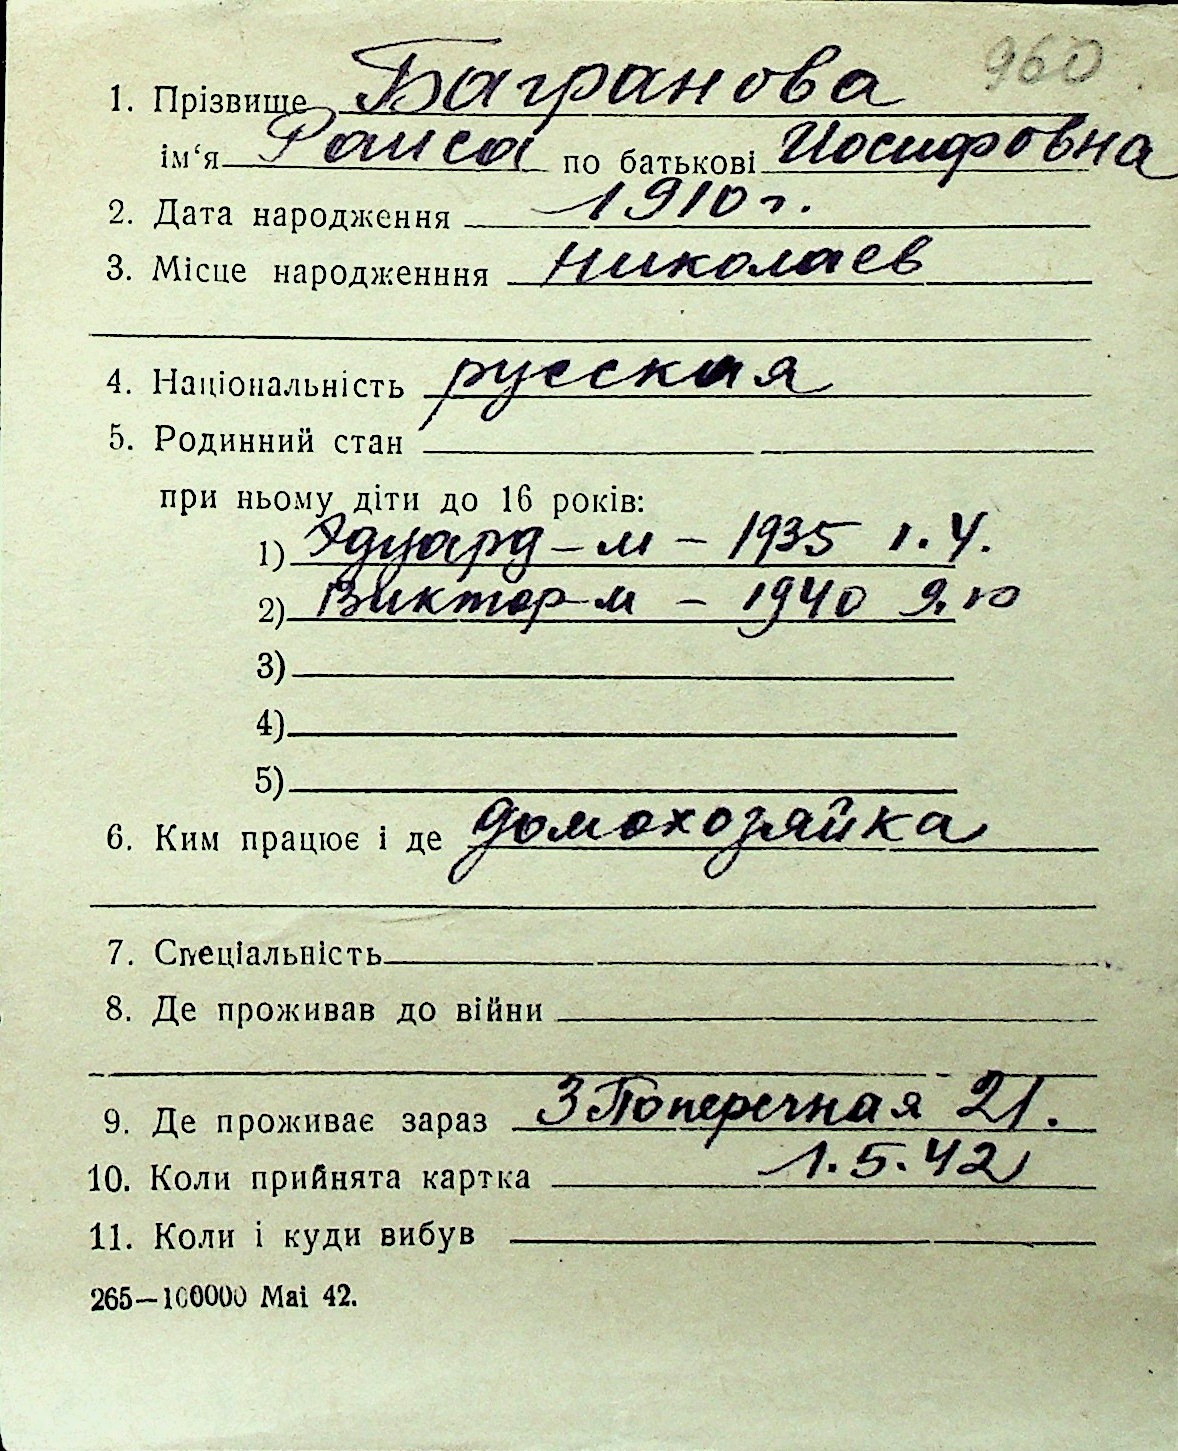 960
1. Прізвище Багранова
ім‘я Раиса по батькові Иосифовна
2. Дата народження 1910 г.
3. Місце народженння Николаев
4. Національність русская
5. Родинний стан
при ньому діти до 16 років:
1) Эдуард – м – 1935 1.4.
2) Виктор – м – 1940 9.10
3)
4)
5)
6. Ким працює і де домохозяйка
7. Спеціальність
8. Де проживав до війни
9. Де проживає зараз 3 Поперечная 21.
10. Коли прийнята картка 1.5.42
11. Коли і куди вибув
265—100000 Mai 42.